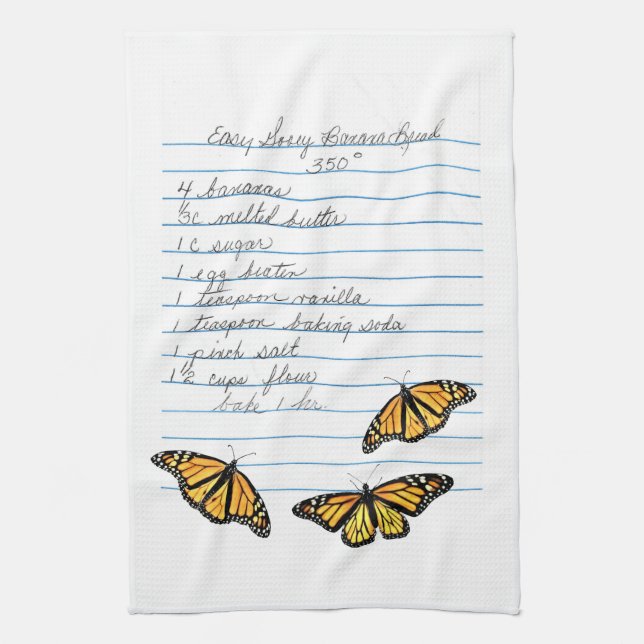 Easy Gooey Banana Bread
350°
4 bananas
1/3c melted butter
1 c sugar
1 egg beaten
1 teaspoon vanilla
1 teaspoon baking soda
1 pinch salt
1 1/2 cups flour
bake 1 hr.